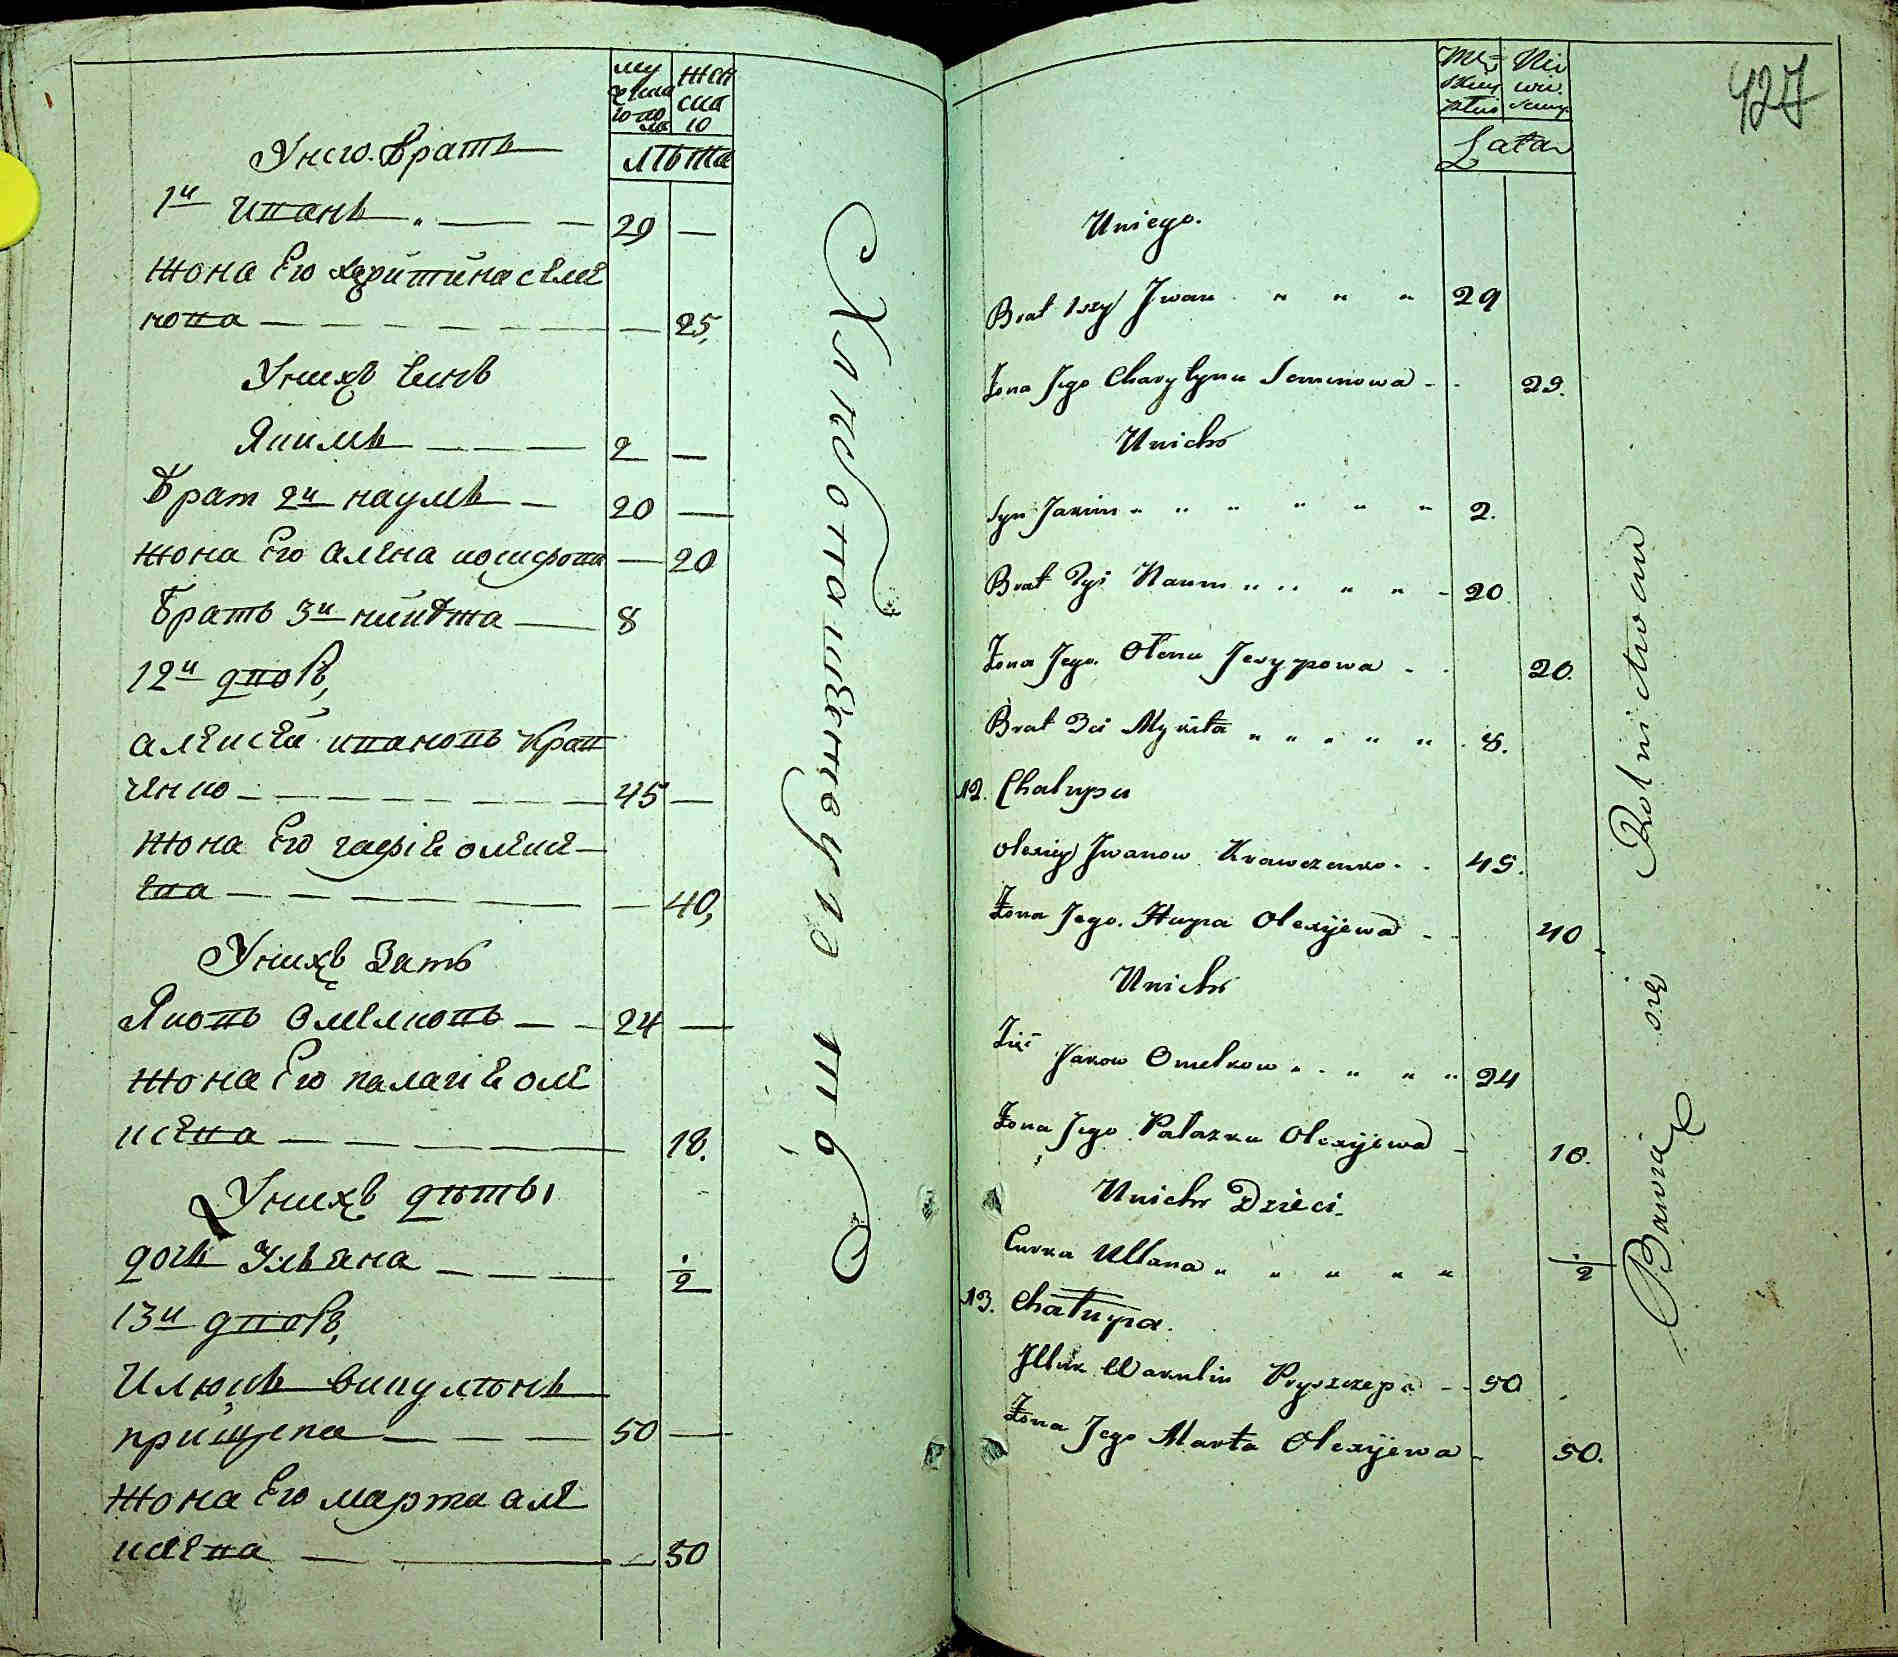 му
жеска
го по
ла
жен
ска
го
лѣта
У него Братъ
1й иванъ 29
жона Его харитина семе
нова 25
У нихъ сынъ
Якимъ 2
Брат 2й наумъ 20
жона Его алена иосифова 20
Братъ 3й никита 8
12й дворъ
алексей ивановъ Крав
ченко 45
жона Его гафіе олексе
ева 40
У нихъ Зять
Яковъ Омелковъ 24
жона Его палагіе оле
ксева 18.
У нихъ дѣты
дочь Ульяна 1/2
13й дворъ
Илюкъ викулинъ
прищепа 50
жона Его марта але
ксева 50
Хлебопашенную тъ
427
Męz
skiey
płci
Nie
wie.
sciey
Lata
U niego.
Brat 1szy Jwan " " " 29
Żona Jego Charytyna Semenowa 29.
U nich
Syn Jakim " " " " " " 2.
Brat 2gi Naum " " " " 20
Żona Jego Ołena Jesypowa 20.
Brat 3ci Mykita " " " " " 8.
12. Chałupa
Olexiey Jwanow Krawczenko 45.
Żona Jego Hapa Olexijewa 40
U nich
Zięć Jakow Omelkow " " " " 24
Żona Jego Pałazka Olexijewa 18.
U nich Dzieci
Curka Ullana " " " " " 1/2
13. Chałupa.
Jlluk Wakulin Pryszczepa 50
Żona Jego Marta Olexijewa 50.
Bawią się Rolnictwem